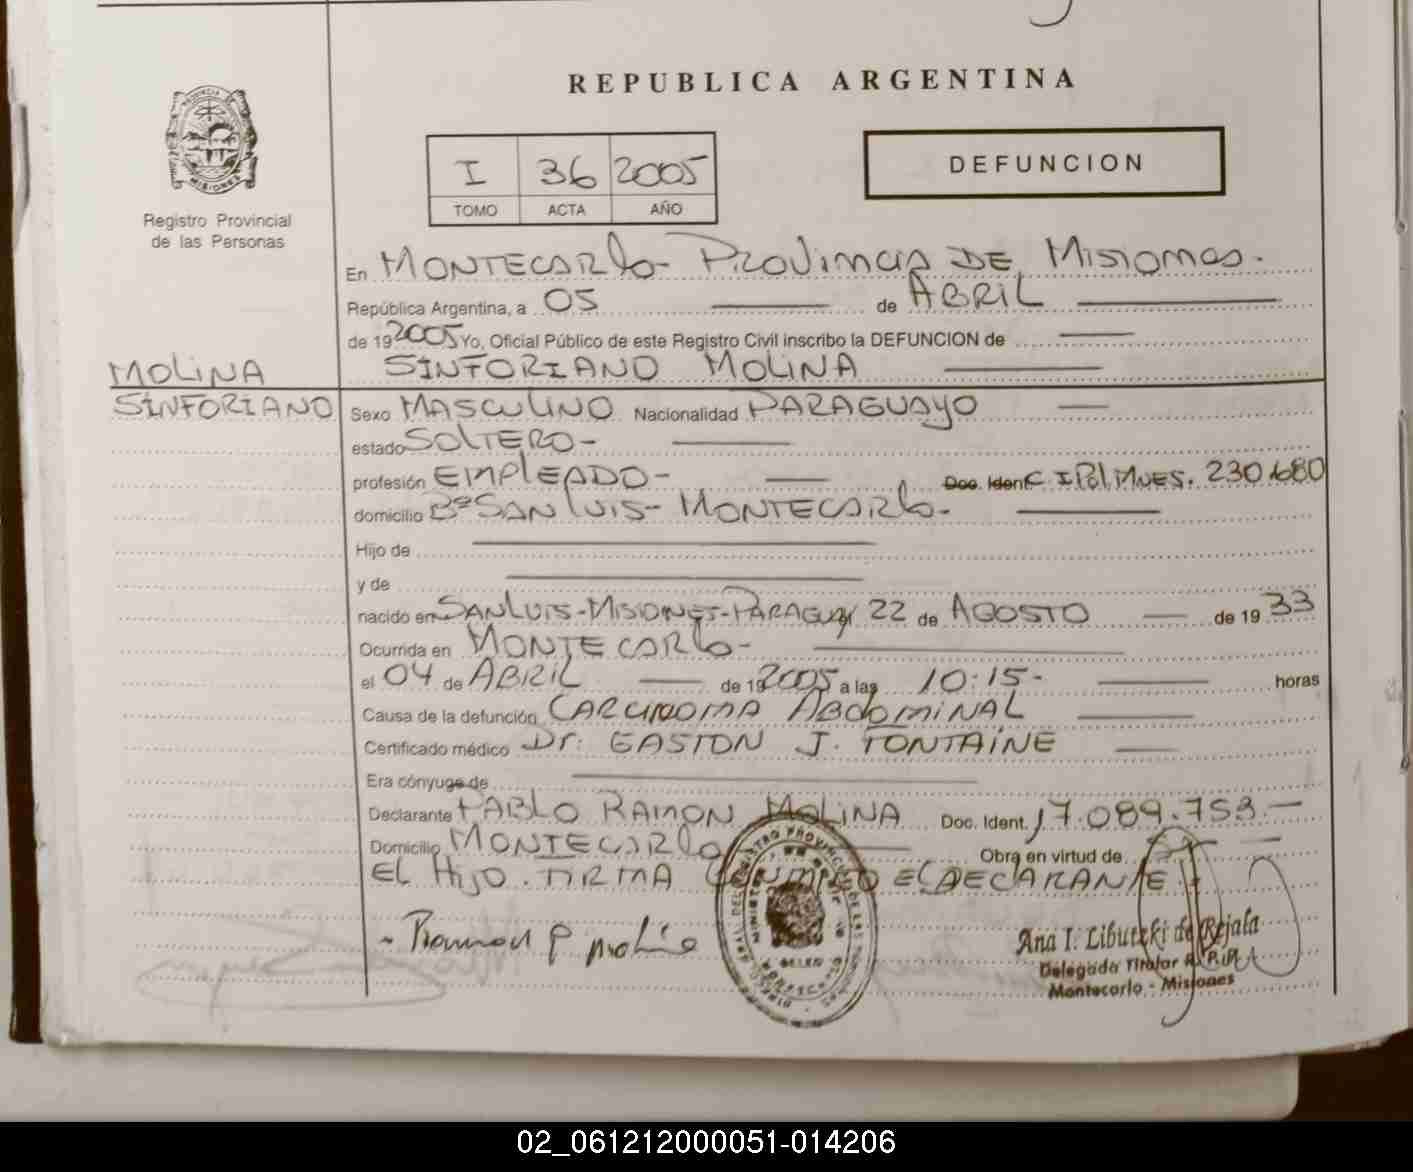 REPUBLICA ARGENTINA
PROVINCIA DE
MISIONES
Registro Provincial
de las Personas
I 36 2005
TOMO ACTA AÑO
DEFUNCION
En MONTECARLO- PROVINCIA DE MISIONES.
República Argentina, a 05 de ABRIL
de 192005 Yo, Oficial Público de este Registro Civil inscribo la DEFUNCION de
MOLINA
SINFORIANO
SINFORIANO MOLINA
Sexo MASCULINO Nacionalidad PARAGUAYO
estado SOLTERO-
profesión EMPLEADO- Doc. Ident. C I Pol MNES. 230.680
domicilio Bº SAN LUIS- MONTECARLO-
Hijo de
y de
nacido en SAN LUIS-MISIONES-PARAGUAY 22 de AGOSTO de 1933
Ocurrida en MONTECARLO-
el 04 de ABRIL de 192005 a las 10:15- horas
Causa de la defunción CARCINOMA ABDOMINAL
Certificado médico Dr. GASTON J. FONTAINE
Era cónyuge de
Declarante PABLO RAMON MOLINA Doc. Ident. 17.089.753.-
Domicilio MONTECARLO Obra en virtud de
EL HIJO. FIRMA EL DECLARANTE.
Ramon P molina
Ana I. Libutzki de Rejala
Delegada Titular R.P.P.
Montecarlo - Misiones
02_061212000051-014206